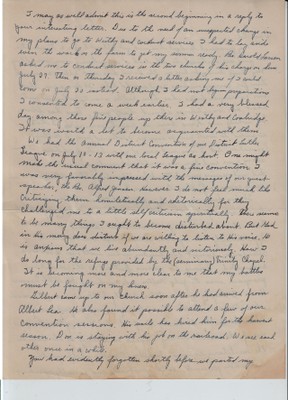 I may as well admit this is the second beginning in a reply to
your interesting letter. Due to the need of an unexpected change in
my plans to go to and conduct services I had to lay aside
even the work on the farm to get my sermon ready. Mr. Harold
asked me to conduct services in the two churches of his charge on
July 29. Then on Thursday I received a letter asking me if I could
come on July 22 instead. Although I had not begun preparations
I consented to come a week earlier. I had a very blessed
day among those fine people up there in and
It was worth a lot to become acquainted with them.
We had the annual District Convention of our District Luther
League on July 11-13 with our local league as host. One might
make the natural comment that it was a fine convention. I
was very favorably impressed with the messages of our guest
speaker, the Rev. Alfred However I do not feel much like
criticizing them homiletically and rhetorically for they
challenged me to a little self criticism spiritually. There seems
to be many things I ought to become disturbed about. But God
in His mercy does disturb if we are willing to listen to His voice. He
is anxious that we live abundantly and victoriously. How I
do long for the refuge provided by the (seminary) Trinity Chapel.
It is becoming more and more clear to me that my battles
must be fought on my knees.
Gilbert came up to our church soon after he had arrived from
Albert Lea. He also found it possible to attend a few of our
convention sessions. His uncle has hired him for the harvest
season. Don is staying with his job on the railroad. We see each
other once in a while.
You had evidently forgotten shortly before we parted my